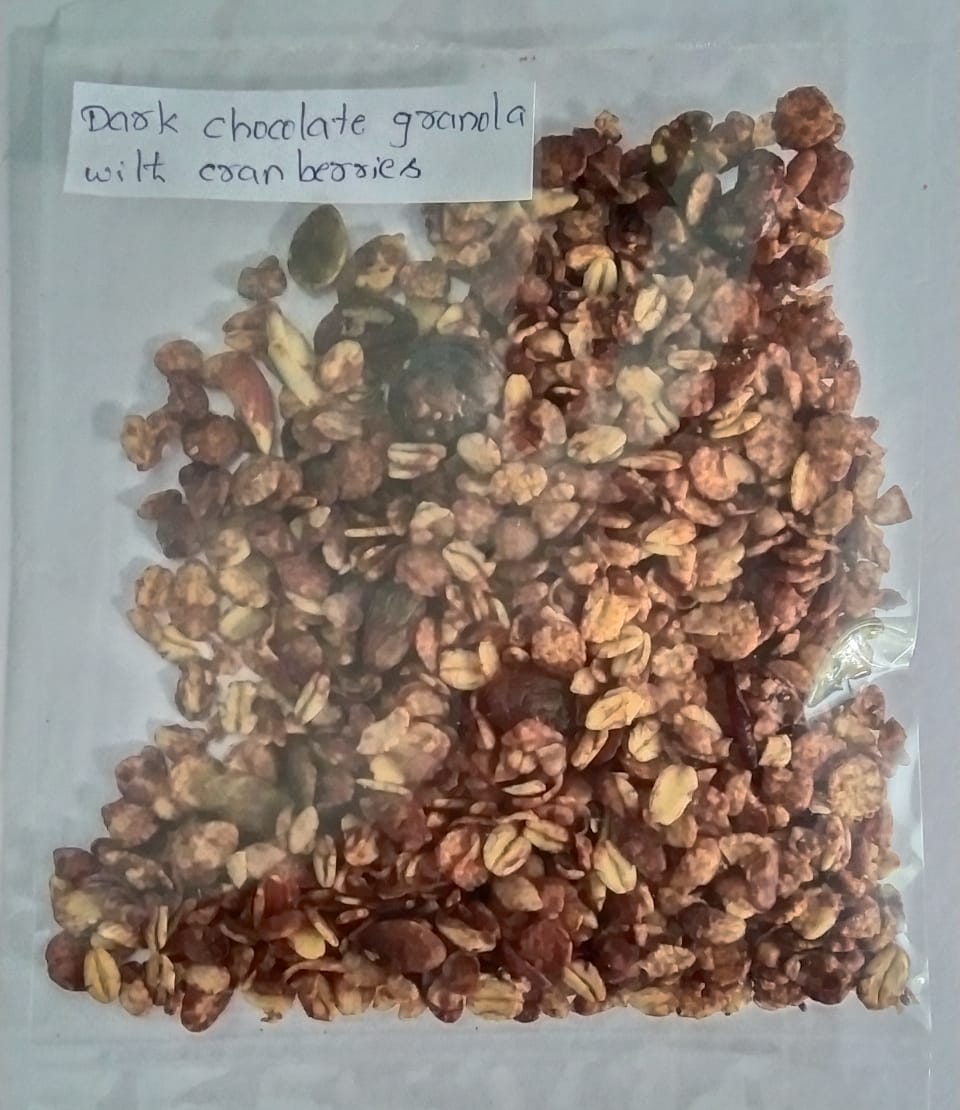 Dark chocolate granola
with cranberries